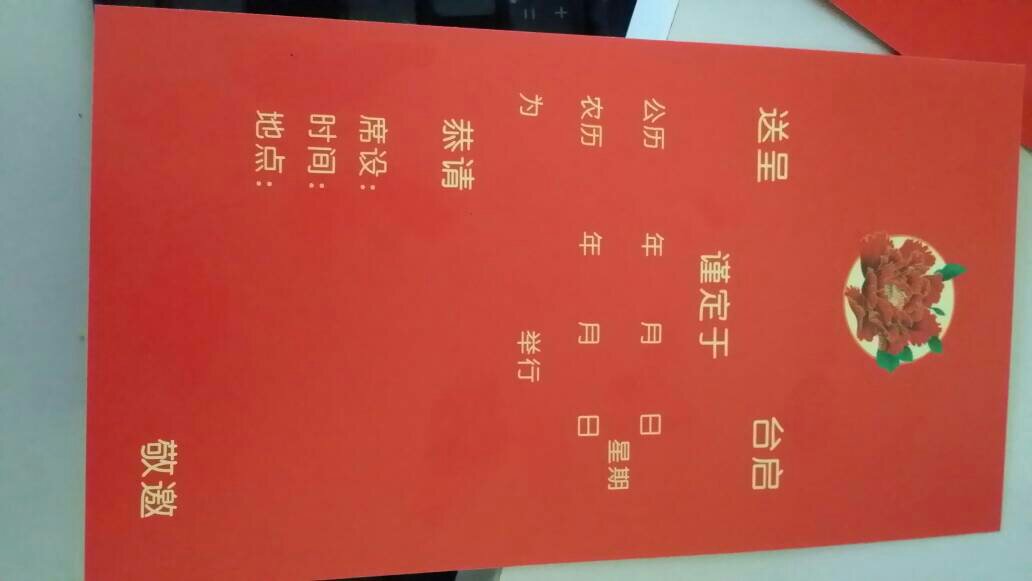 送呈 台启
谨定于
公历 年 月 日
星期
农历 年 月 日
为 举行
恭请
席设:
时间:
地点:
敬邀